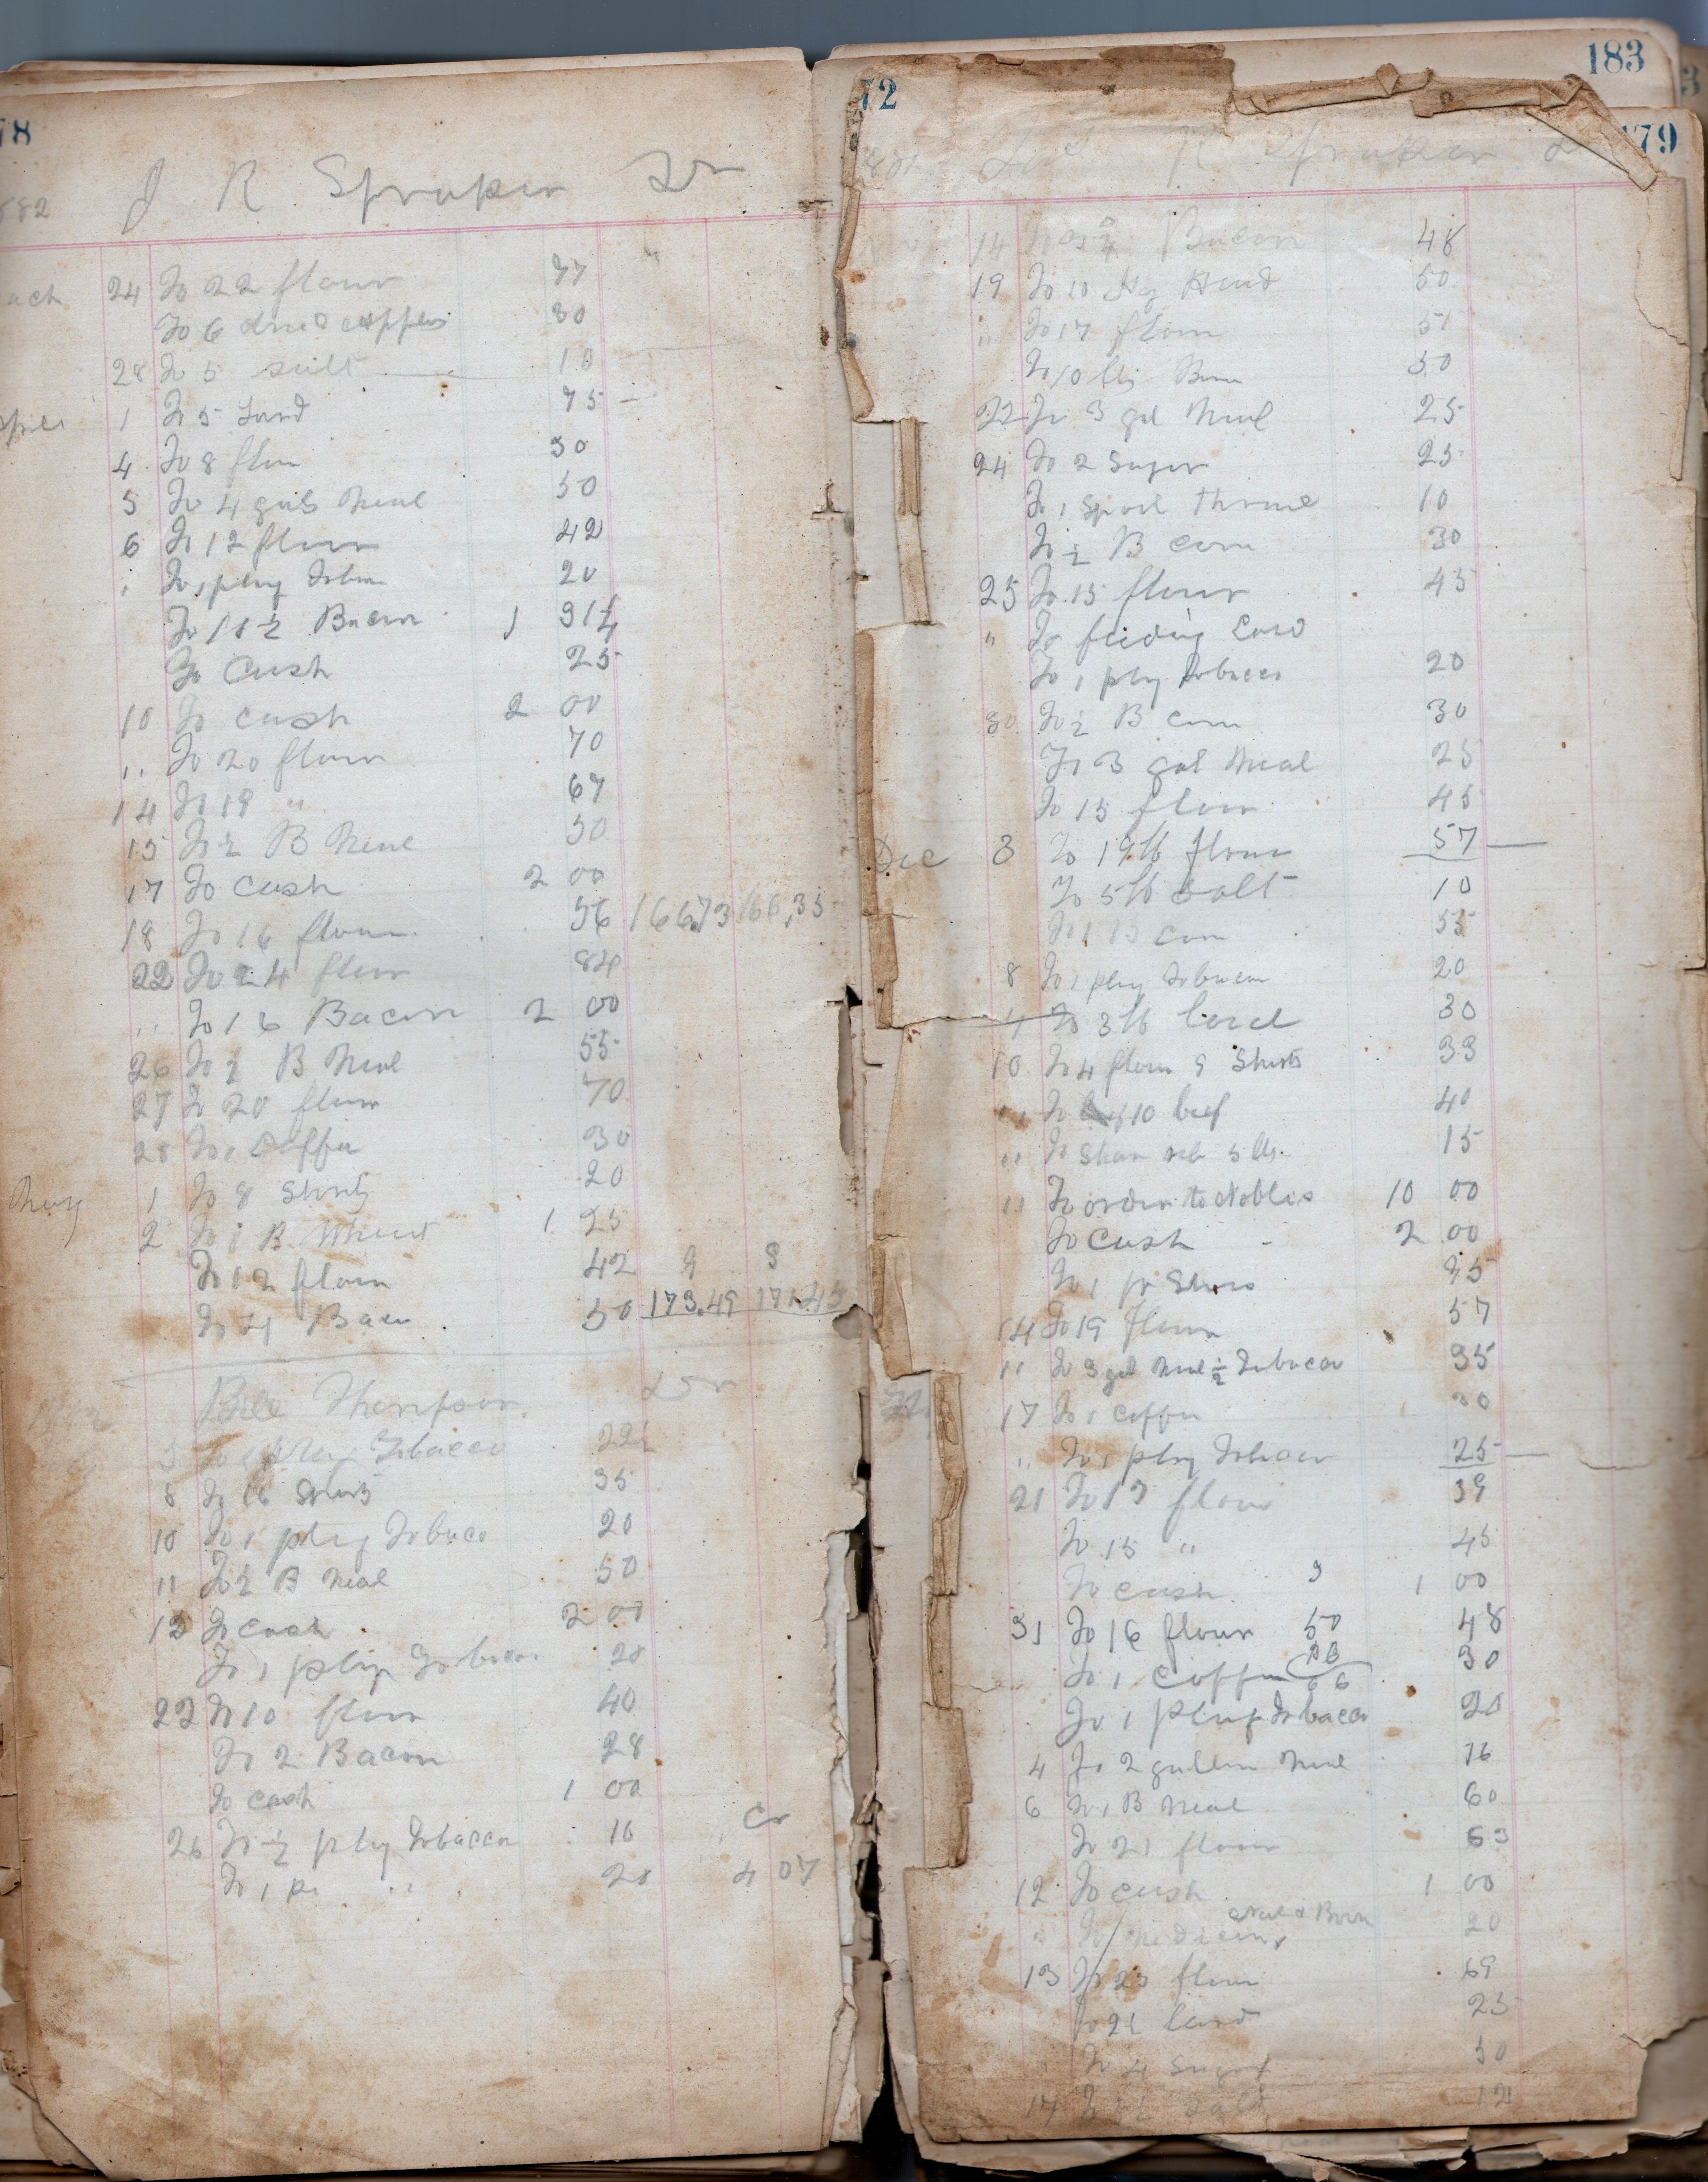 78
J R Spraker Dr
882
ach 24 To 22 flour 77
To 6 dried apples 30
28 To 5 salt 10
April 1 To 5 Lard 75
4 To 8 flour 30
5 To 4 gals Meal 50
6 To 12 flour 42
" To 1 plug Tobac 20
To 10 ½ Bacon 1 31¼
To Cash 25
10 To cash 2 00
" To 20 flour 70
14 To 19 " 67
15 To ½ B Meal 50
17 To cash 2 00
18 To 16 flour 56 166.73 166.35
22 To 24 flour 84
" To 16 Bacon 2 00
26 To ½ B Meal 55
27 To 20 flour 70
28 To 1 Coffee 30
May 1 To 8 Shorts 20
2 To 1 B Wheat 1 25
To 12 flour 42
To 4 Bacn 50 173.49 171.45
Bill Thompson Dr
5 To 1 Plug Tobacco 22½
8 To 16 Shorts 35
10 To 1 plug Tobaco 20
11 To ½ B Meal 50
13 To cash 2 00
To 1 plug Tobacco 20
22 To 10 flour 40
To 2 Bacon 28
To cash 1 00
26 To ½ plug Tobacco 10 Cr
To 1 pl " " 20 4 07
183
72
179
R Spraker
14 Bacon 48
19 To 10 Hog Head 50
" To 17 flour 51
To 10 lbs Bran 50
22 To 3 gal Meal 25
24 To 2 Sugar 25
To 1 Spool Thread 10
To ½ B corn 30
25 To 15 flour 45
" To feeding Cow
To 1 plug Tobacco 20
30 To ½ B corn 30
To 3 gal Meal 25
To 15 flour 45
Dec 3 To 19 lb flour 57
To 5 lb Salt 10
To 1 B corn 55
8 To 1 plug Tobacco 20
4 To 3 lb lard 30
10 To 4 flour 9 Shorts 33
" To 10 beef 40
" To 5 lbs 15
11 To order to Nobles 10 00
To Cash 2 00
To 1 pr 95
14 To 19 flour 57
" To 3 gal Meal ½ Tobacco 35
17 To 1 coffee 30
" To 1 plug Tobacco 25
21 To 13 flour 39
To 15 " 45
To cash 1 00
31 To 16 flour 50 48
To 1 Coffee 66 30
To 1 Plug Tobacco 20
4 To 2 gallon Meal 16
6 To 1 B Meal 60
To 21 flour 63
12 To cash 1 00
" To Medicine 20
13 To 23 flour 69
To 2½ lard 25
To 4 Sugar 50
17 To Salt 12